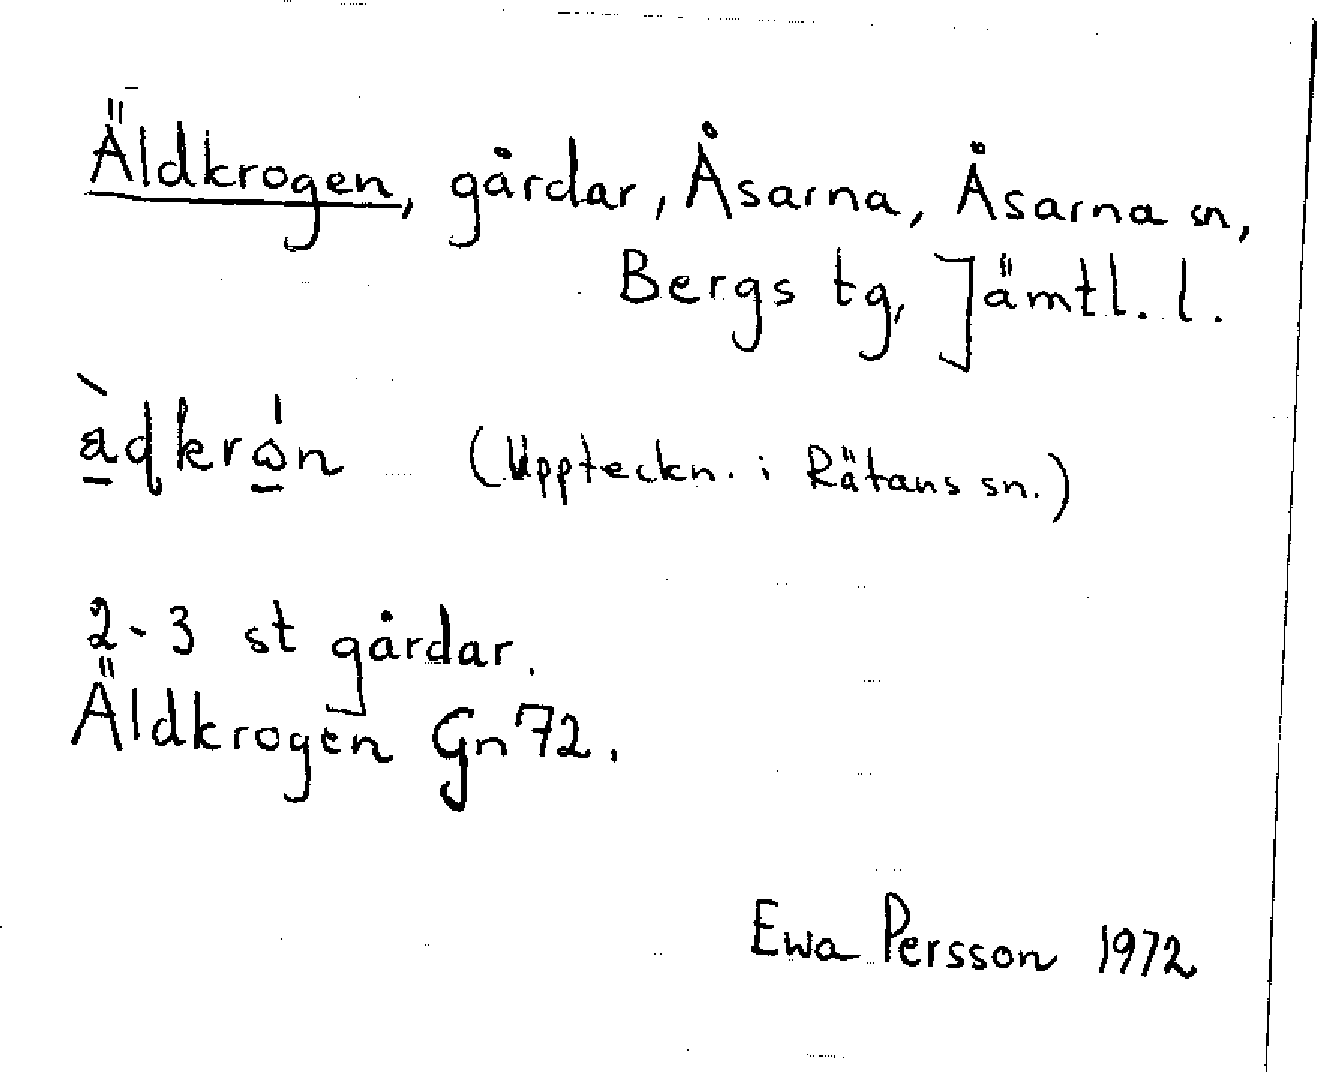 Äldkrogen, gårdar, Åsarna, Åsarna sn,
Bergs tg, Jämtl. l.
(Uppteckn. i Rätans sn.)
2-3 st gårdar.
Äldkrogen Gn 72.
Ewa Persson 1972